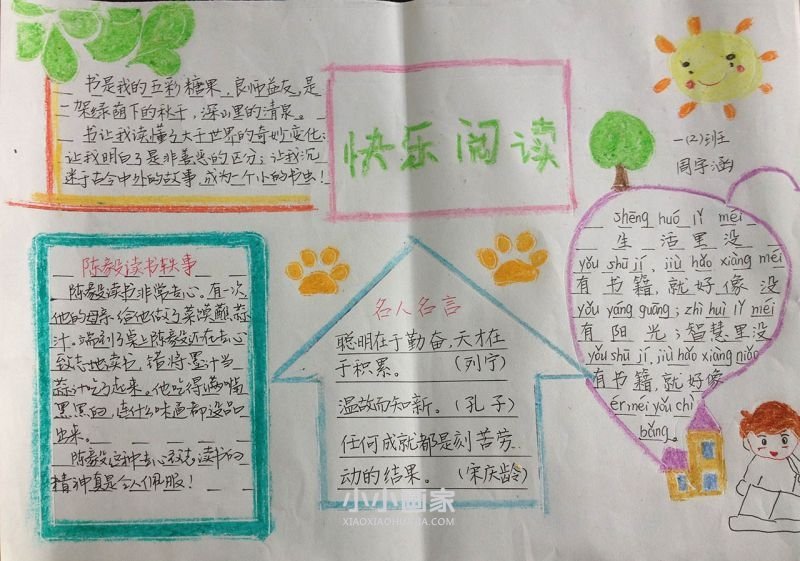 书是我的五彩糖果,良师益友,是
一架绿荫下的秋千,深山里的清泉。
书让我读懂了大千世界的奇妙变化;
让我明白了是非善恶的区分;让我沉
迷于古今中外的故事,成为一个小的书虫!
快乐阅读
一(2)班
周宇涵
陈毅读书轶事
陈毅读书非常专心。有一次
他的母亲给他做了菜馍蘸蒜
汁。端到了桌上陈毅还在专心
致志地读书,错将墨汁当
蒜汁吃了起来。他吃得满嘴
黑黑的,连什么味道都没品
出来。
陈毅这种专心致志读书的
精神真是令人佩服!
名人名言
聪明在于勤奋,天才在
于积累。(列宁)
温故而知新。(孔子)
任何成就都是刻苦劳
动的结果。(宋庆龄)
shēng huó lǐ méi
生活里没
yǒu shū jí, jiù hǎo xiàng méi
有书籍,就好像没
yǒu yáng guāng; zhì huì lǐ méi
有阳光;智慧里没
yǒu shū jí, jiù hǎo xiàng niǎo
有书籍,就好像
ér méi yǒu chì
bǎng。
小小画家
XIAOXIAOHUAJIA.COM